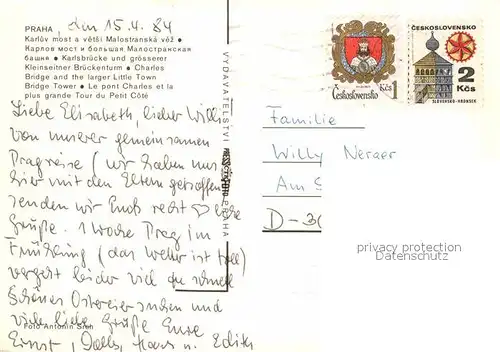 PRAHA, den 15.4.84
Karlův most a větší Malostranská věž ●
Карлов мост и большая Малостранская
башня ● Karlsbrücke und grösserer
Kleinseitner Brückenturm ● Charles
Bridge and the larger Little Town
Bridge Tower ● Le pont Charles et la
plus grande Tour du Petit Côté
Liebe Elisabeth, lieber Willi
von unserer gemeinsamen
Pragreise (wir haben uns
hier mit den Eltern getroffen
senden wir Euch recht liebe
Grüße. 1 Woche Prag im
Frühling (das Wetter ist toll)
vergeht leider viel zu schnell
Schönes Ostereier suchen und
viele liebe Grüße Eure
Foto Antonín Srch
Ernst, Hans u. Edith
VYDAVATELSTVÍ
PRAHA
Československo 1 Kčs
ČESKOSLOVENSKO
2
Kčs
SLOVENSKO-HRONSEK
Familie
Willy Neraer
Am S
D-30
privacy protection
Datenschutz